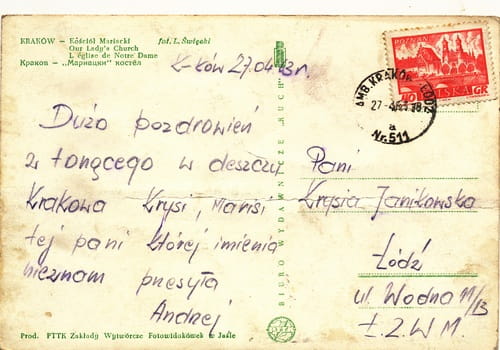 KRAKÓW — Kościół Mariacki
Our Lady's Church
L'église de Notre Dame
Краков — „Мариацки" костёл
fot. L. Święcki
K-ków 27.04.63r.
Dużo pozdrowień
z tonącego w deszczu
Krakowa Krysi, Marisi
tej pani której imienia
nieznam przesyła
Andrzej
BIURO WYDAWNICZE „RUCH"
POZNAŃ
40 POLSKA GR
AMB. KRAKÓW - ŁÓDŹ
27-4
a
Nr. 511
Pani
Krysia Janikowska
Łódź
ul. Wodna 11/13
Ł.Z.W.M.
Prod. PTTK Zakłady Wytwórcze Fotowidokówek w Jaśle